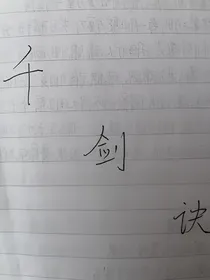 千
剑
诀